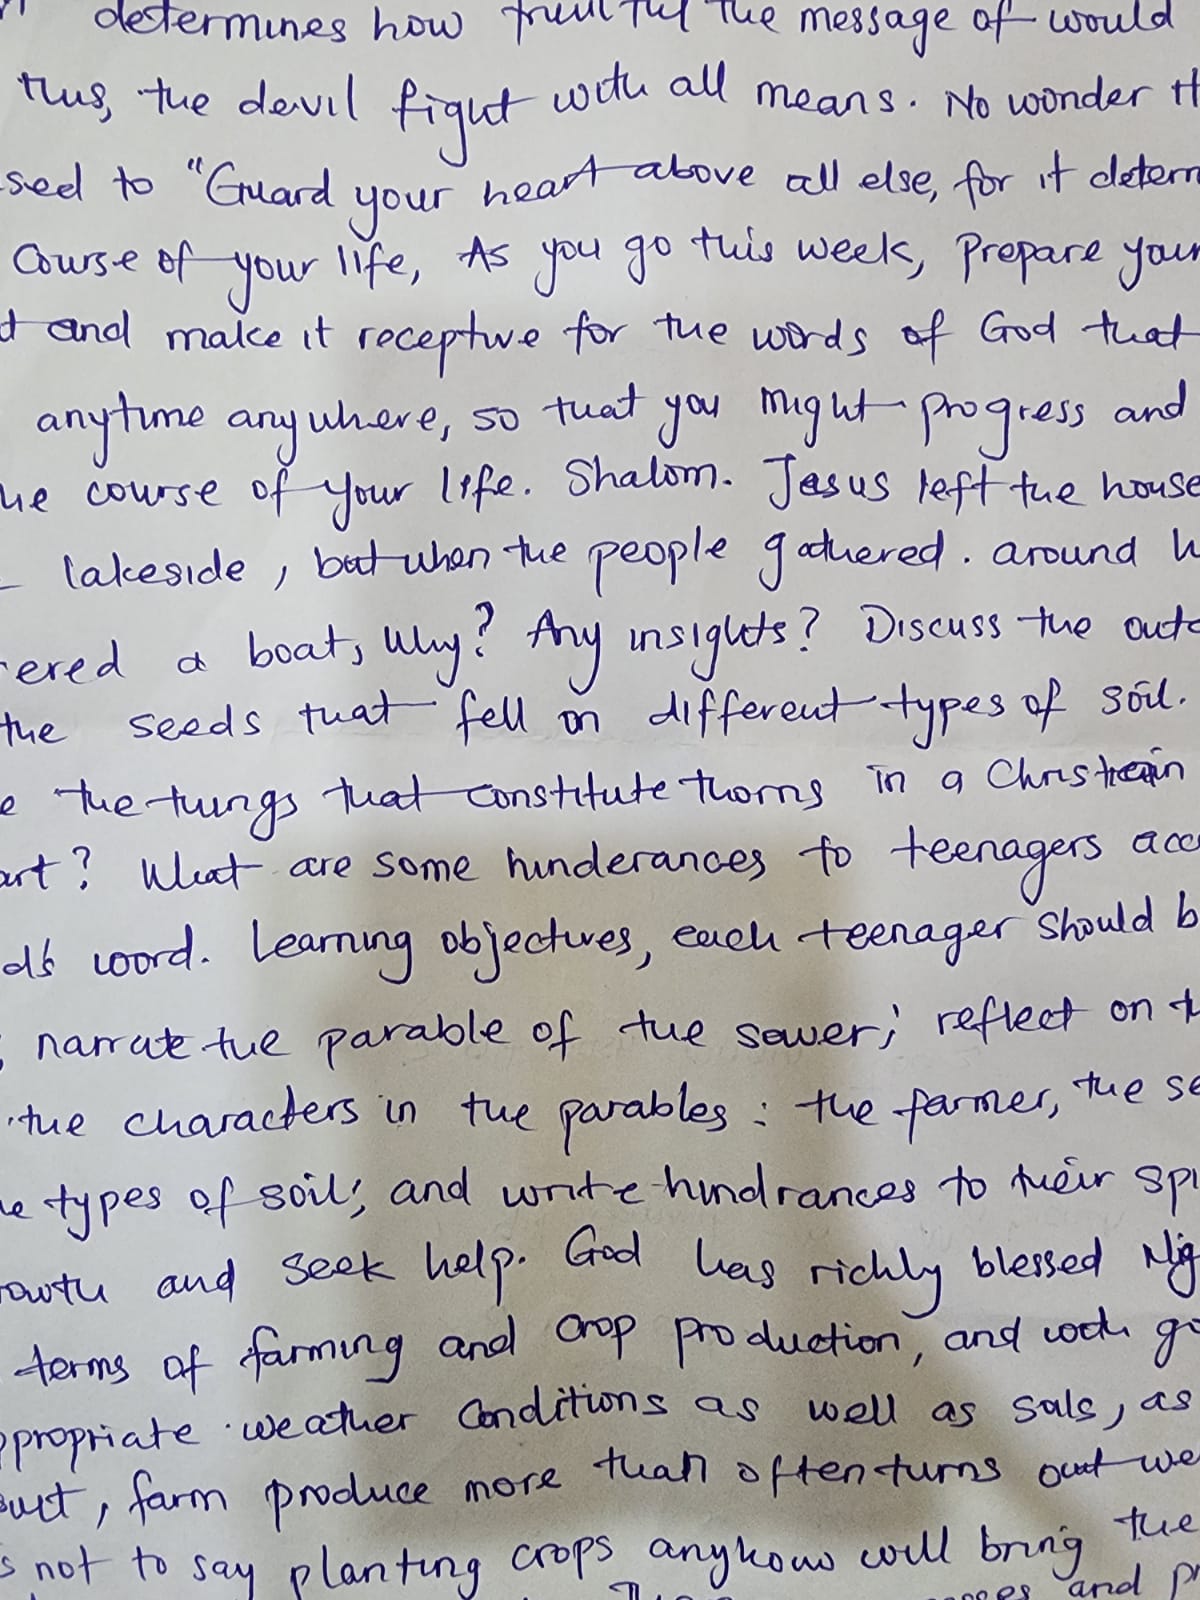 determines how fruitful the message of would
thus, the devil fight with all means. No wonder
sed to "Guard your heart above all else, for it determ
Course of your life, As you go this week, Prepare your
and make it receptive for the words of God that
anytime anywhere, so that you might progress and
he course of your life. Shalom. Jesus left the house
lakeside, but when the people gathered. around h
ered a boat, Why? Any insights? Discuss the outc
the seeds that fell on different types of soil.
e the things that constitute thorns in a Christain
art? What are some hinderances to teenagers acc
d's word. Learning objectives, each teenager should b
narrate the parable of the sower; reflect on t
the characters in the parables: the farmer, the se
he types of soil; and write hindrances to their spi
rowth and seek help. God has richly blessed Nig
terms of farming and crop production, and with go
ppropriate weather Conditions as well as soils, as
sult, farm produce more than often turns out we
s not to say planting crops anyhow will bring the
and pr